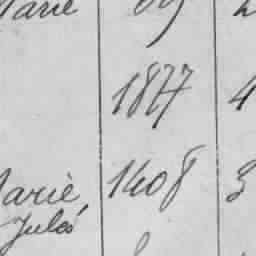 Marie
1877 4
Marie, 1408 3
Jules